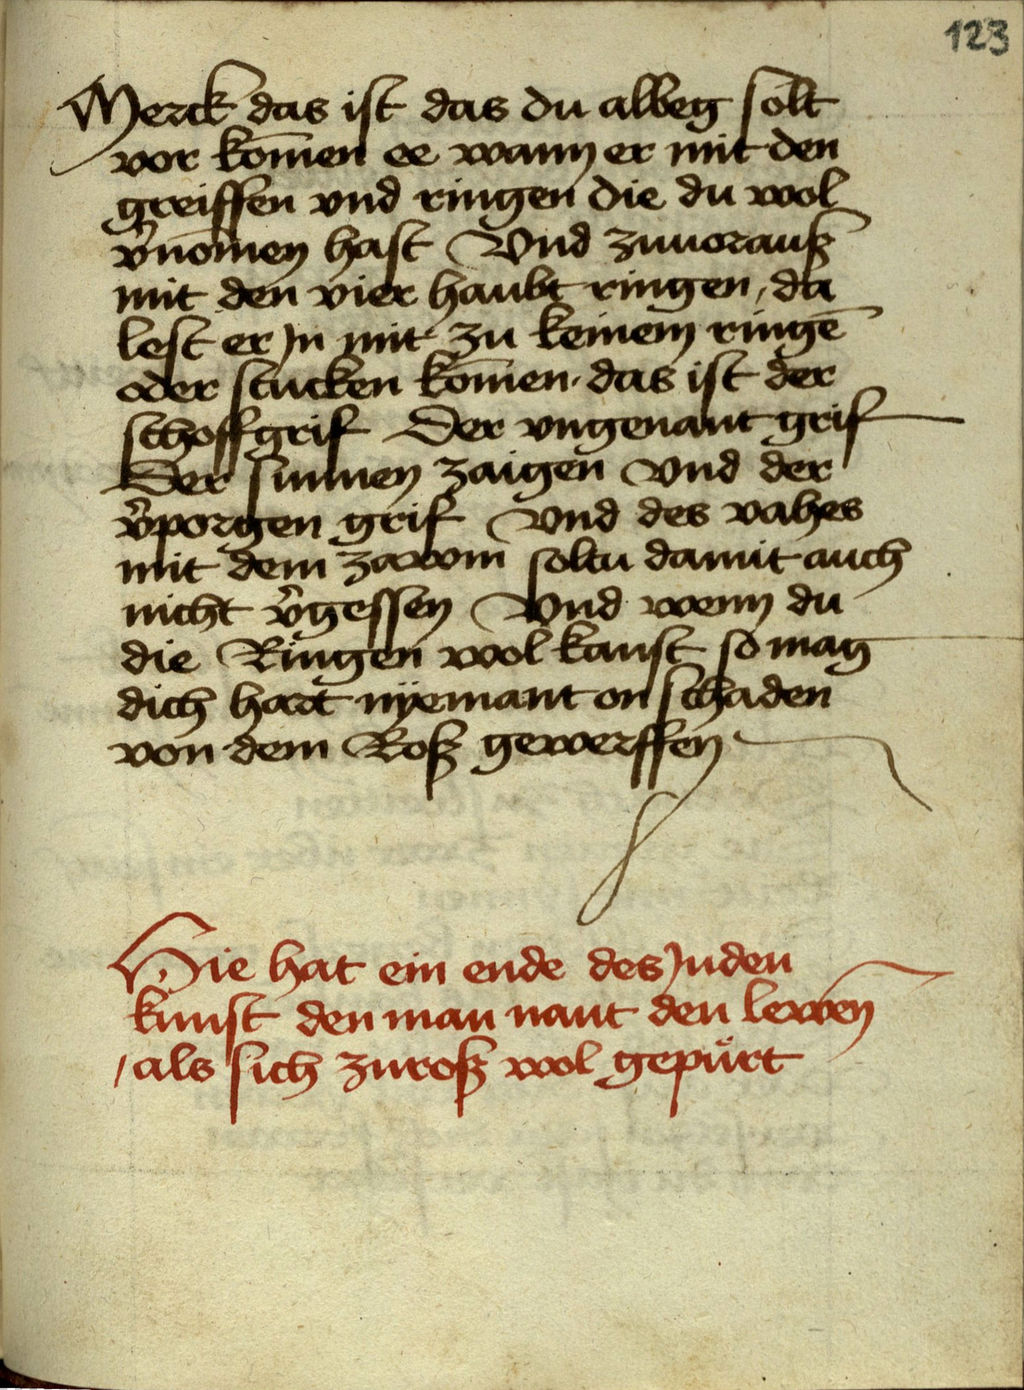 123
Merck das ist das du albeg solt
vor kom̄en ee wann er mit den
greiffen vnd ringen die du wol
v̉nom̄en hast Vnd zuuorauß
mit den vier haubt ringen, da
lest er Jn mit zu keinem ringē
oder stucken kom̄en. das ist der
schoffgrif Der vngenant grif
Der sunnen zaigen vnd der
v̉porgen grif vnd des vahes
mit dem zawm soltu damit auch
nicht v̉gessen Vnd wenn du
die Ringen wol kanst so mag
dich hart nÿemant on schaden
von dem Roß gewerffen
Hie hat ein ende des Juden
kunst den man nant den lewen
/als sich zuroß wol gepürt